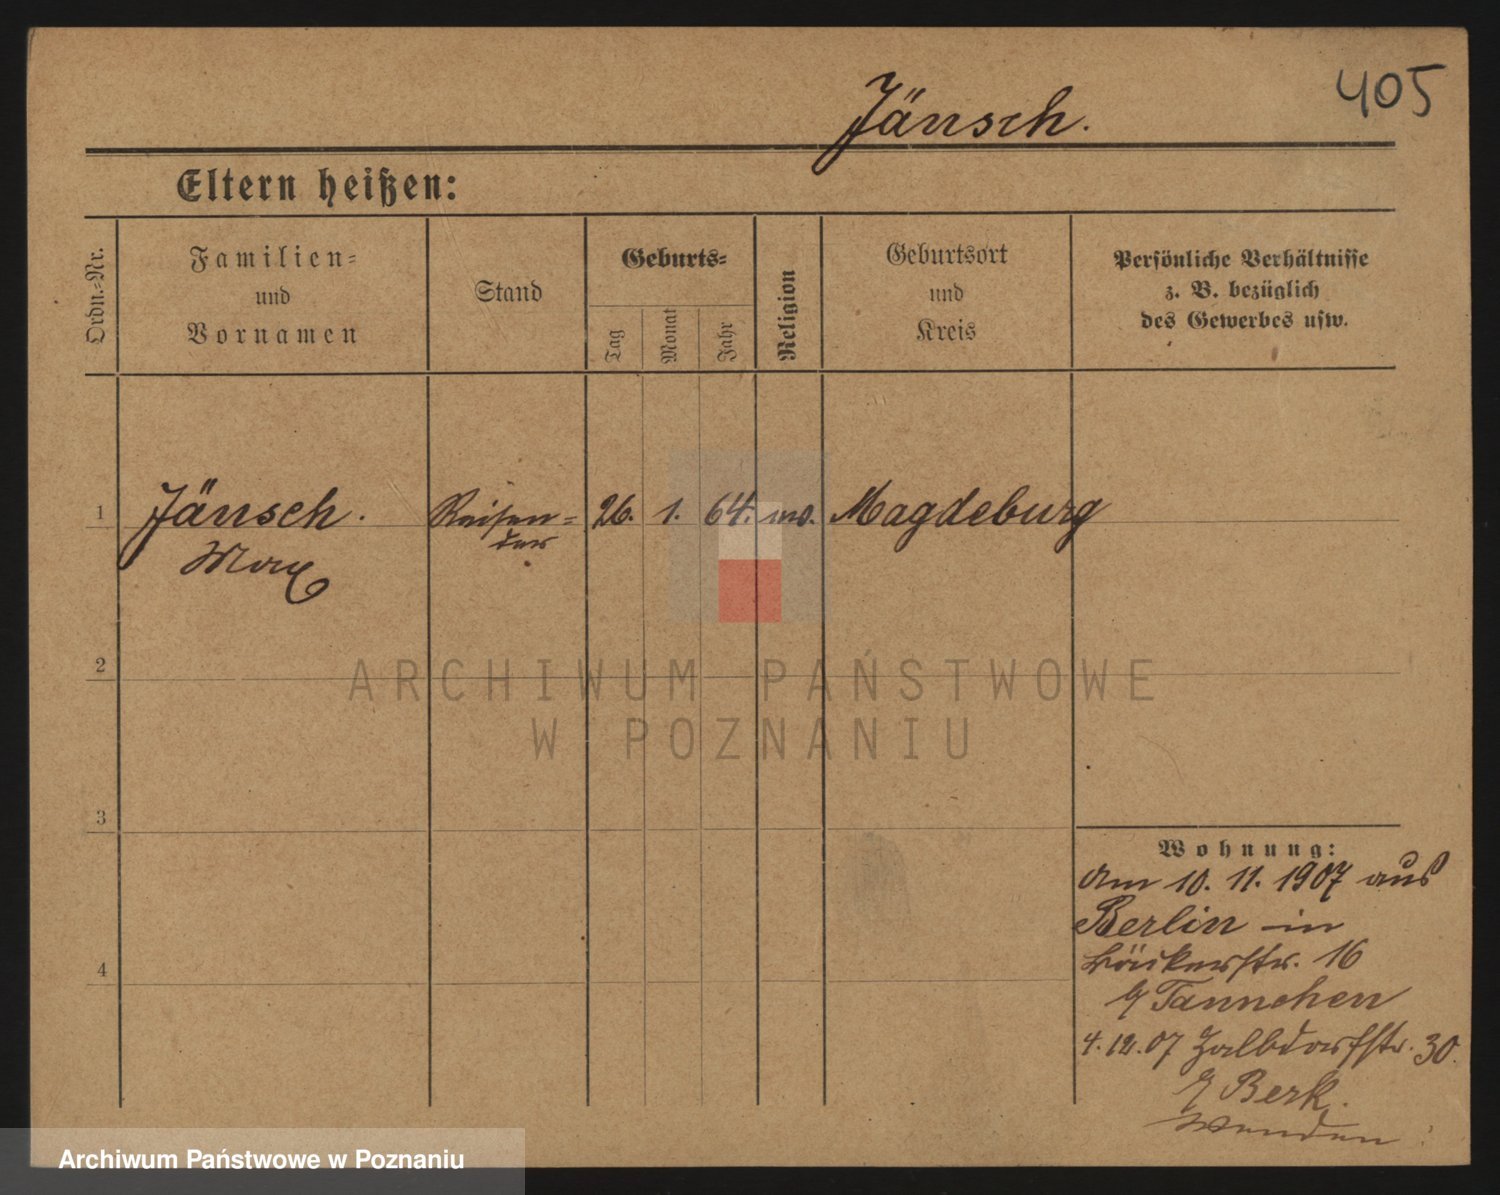 405
Jänsch.
Eltern heißen:
Ordn.-Nr.
Familien-
und
Vornamen
Stand
Geburts-
Tag
Monat
Jahr
Religion
Geburtsort
und
Kreis
Persönliche Verhältnisse
z. B. bezüglich
des Gewerbes usw.
1
Jänsch.
Max
Reisen-
der
26. 1. 64.
Magdeburg
2
3
4
ARCHIWUM PAŃSTWOWE
W POZNANIU
Wohnung:
Am 10. 11. 1907 aus
Berlin in
Bäckerstr. 16
Tannchen
4. 12. 07 30.
Berk.
Wenden
Archiwum Państwowe w Poznaniu